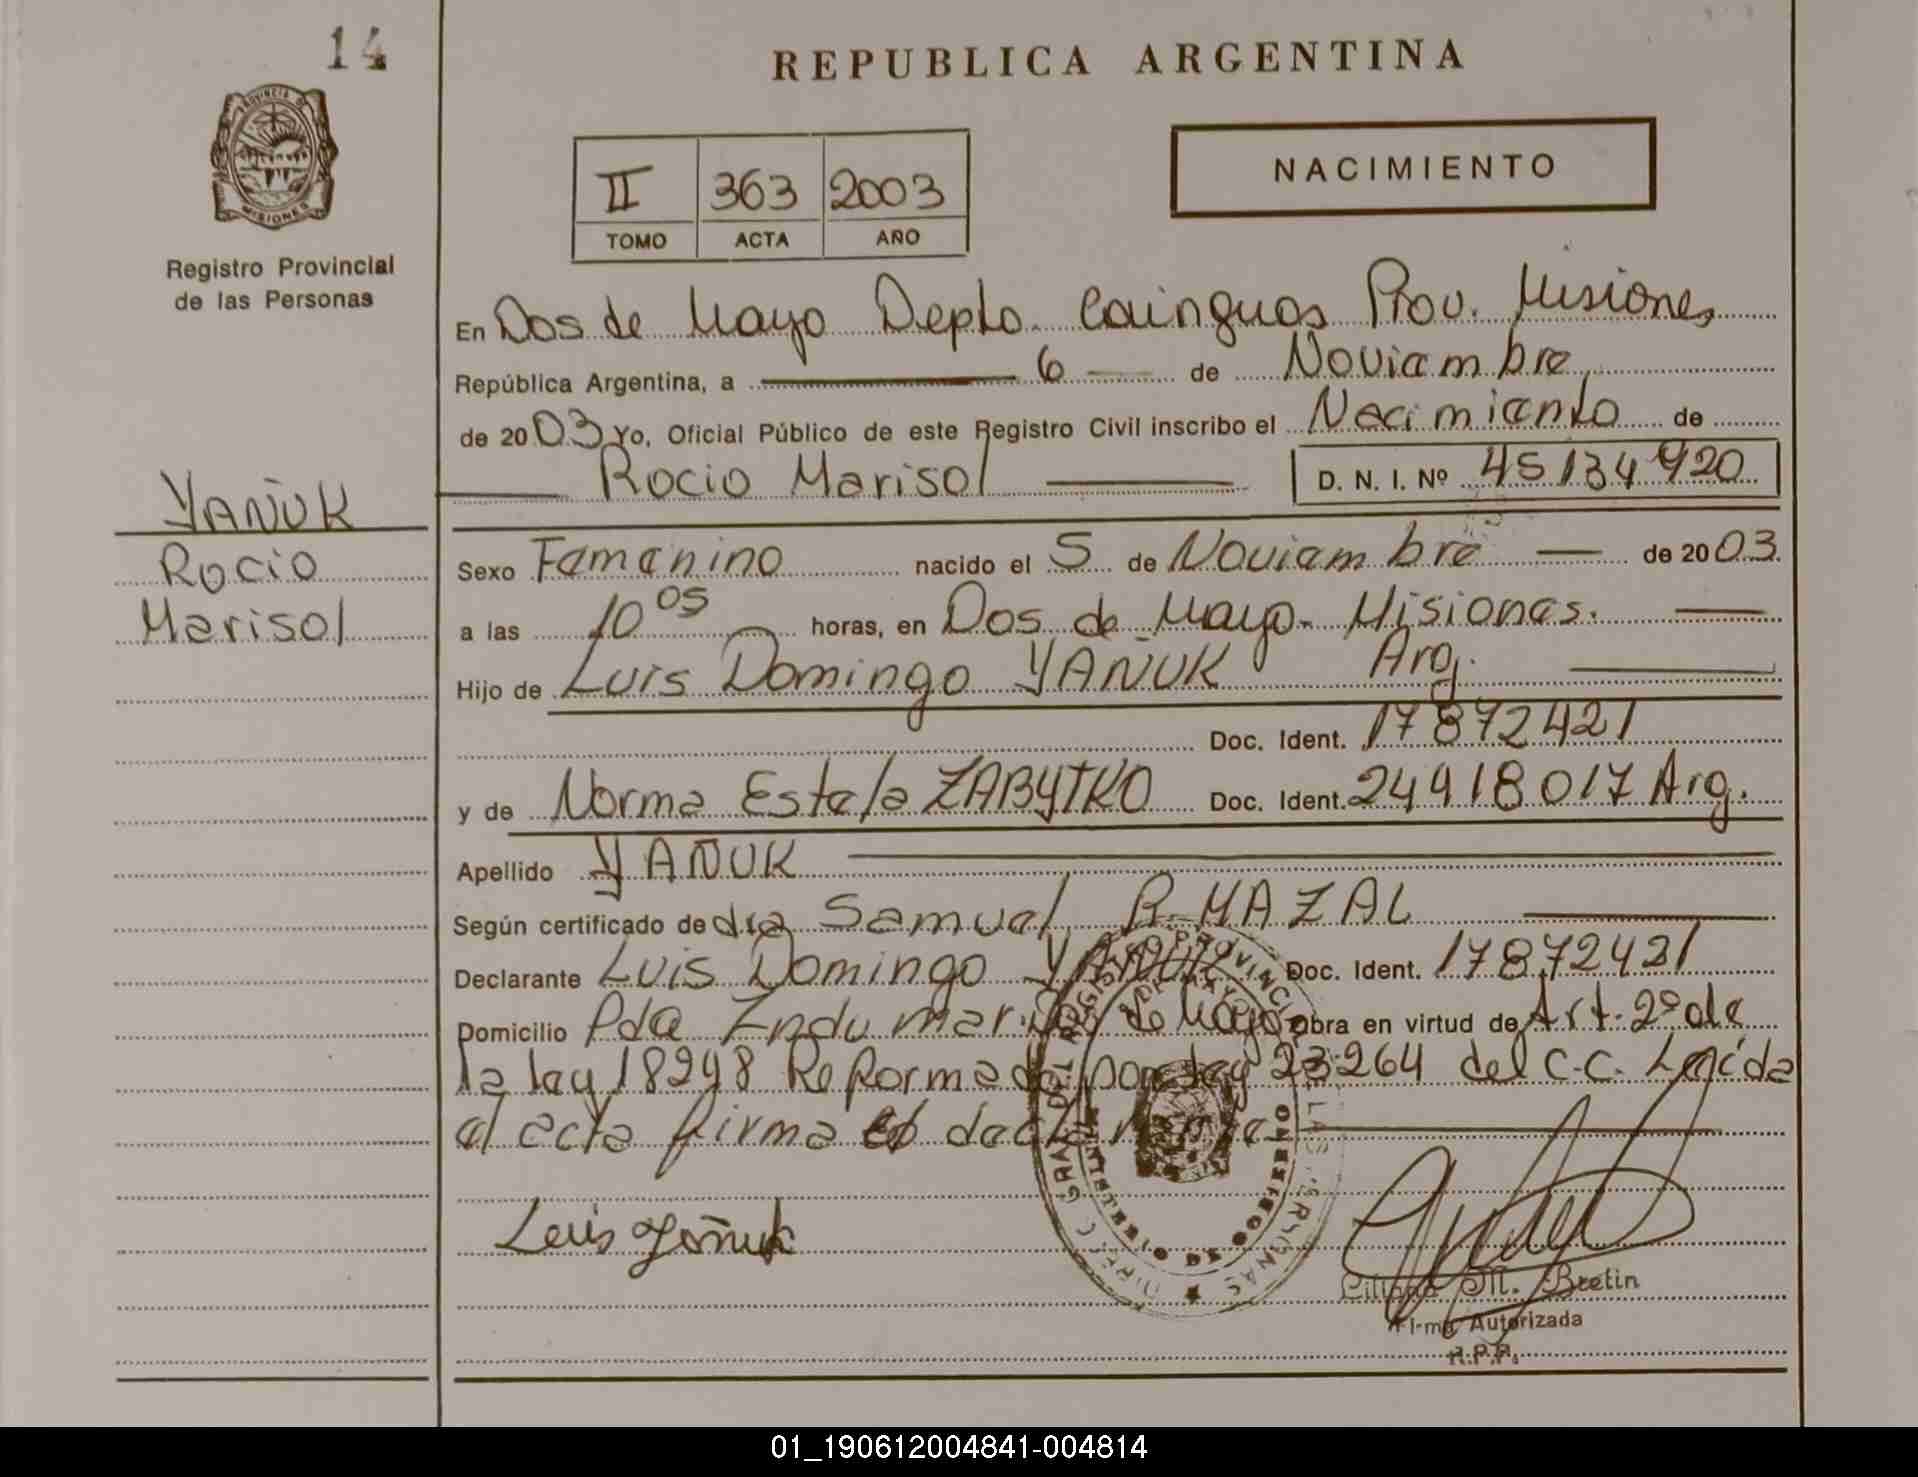 14
REPUBLICA ARGENTINA
PROVINCIA DE
MISIONES
Registro Provincial
de las Personas
II 363 2003
TOMO ACTA AÑO
NACIMIENTO
En Dos de Mayo Depto. Cainguas Prov. Misiones
República Argentina, a 6 de Noviembre
de 2003 Yo, Oficial Público de este Registro Civil inscribo el Nacimiento de
Rocio Marisol D. N. I. Nº 45134920
YAÑUK
Rocio
Marisol
Sexo Femenino nacido el 5 de Noviembre de 2003.
a las 10 05 horas, en Dos de Mayo. Misiones.
Hijo de Luis Domingo YAÑUK Arg.
Doc. Ident. 17872421
y de Norma Estela ZABYTKO Doc. Ident. 24918017 Arg.
Apellido YAÑUK
Según certificado de dra Samuel R. MAZAL
Declarante Luis Domingo YAÑUK Doc. Ident. 17872421
Domicilio Pda Indumar. Dos de Mayo Obra en virtud de Art. 2º de
la ley 18248 Reformada por ley 23264 del C.C. Leída
el acta firma el declarante
Luis Yañuk
MINISTERIO DE GOBIERNO
Liliana M. Bretin
Firma Autorizada
R.P.P.
01_190612004841-004814